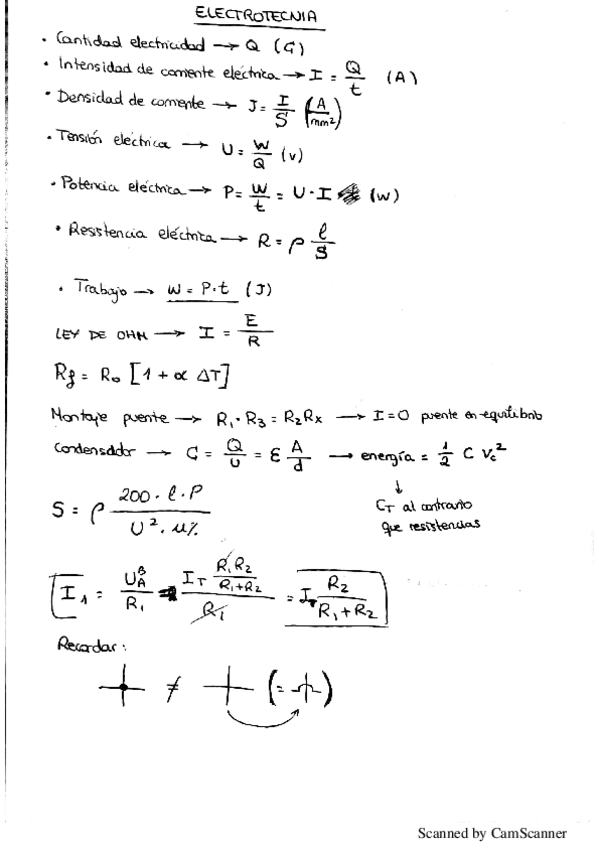 ELECTROTECNIA
• Cantidad electricidad → Q (C)
• Intensidad de corriente eléctrica → I = Q/t (A)
• Densidad de corriente → J = I/S (A/mm²)
• Tensión eléctrica → U = W/Q (V)
• Potencia eléctrica → P = W/t = U·I (W)
• Resistencia eléctrica → R = ρ l/S
• Trabajo → W = P·t (J)
LEY DE OHM → I = E/R
Rf = R₀ [1 + α ΔT]
Montaje puente → R₁·R₃ = R₂Rx → I=0 puente en equilibrio
Condensador → C = Q/U = ε A/d → energía = 1/2 C Vc²
↓
CT al contrario
que resistencias
S = ρ 200·l·P / U²·u%
I₁ = U_A^B / R₁ = I_T (R₁R₂/(R₁+R₂)) / R₁ = I_T R₂/(R₁+R₂)
Recordar:
≠ (= )
Scanned by CamScanner